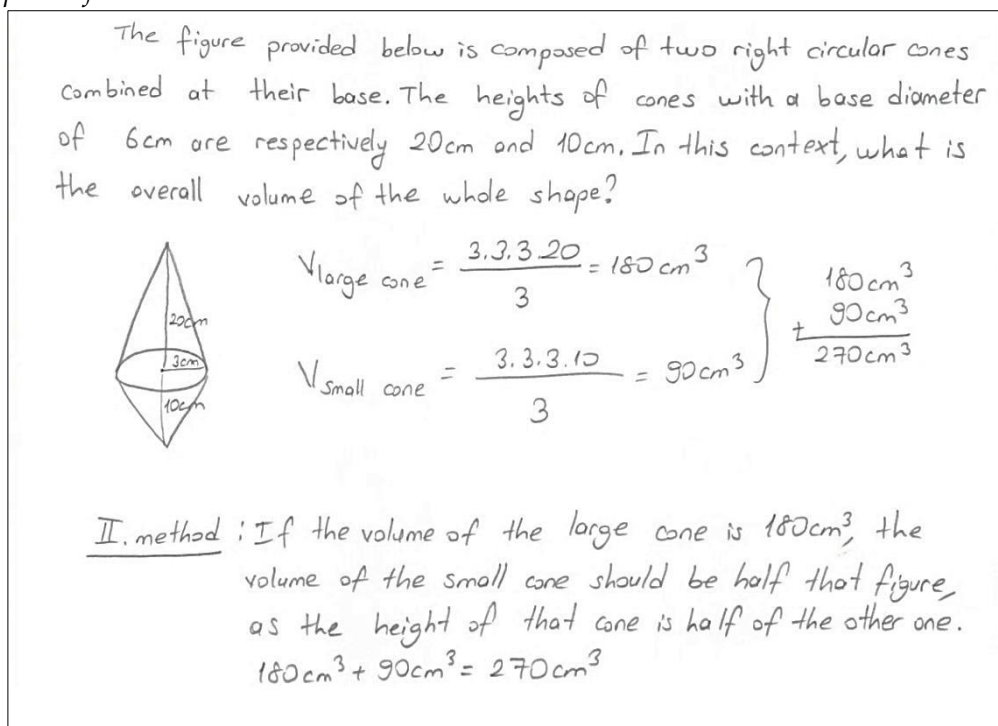 The figure provided below is composed of two right circular cones
combined at their base. The heights of cones with a base diameter
of 6cm are respectively 20cm and 10cm. In this context, what is
the overall volume of the whole shape?
20cm
3cm
10cm
V large cone = 3.3.3.20 / 3 = 180 cm³
V small cone = 3.3.3.10 / 3 = 90cm³
180cm³
+ 90cm³
270cm³
II. method : If the volume of the large cone is 180cm³, the
volume of the small cone should be half that figure,
as the height of that cone is half of the other one.
180cm³ + 90cm³ = 270cm³